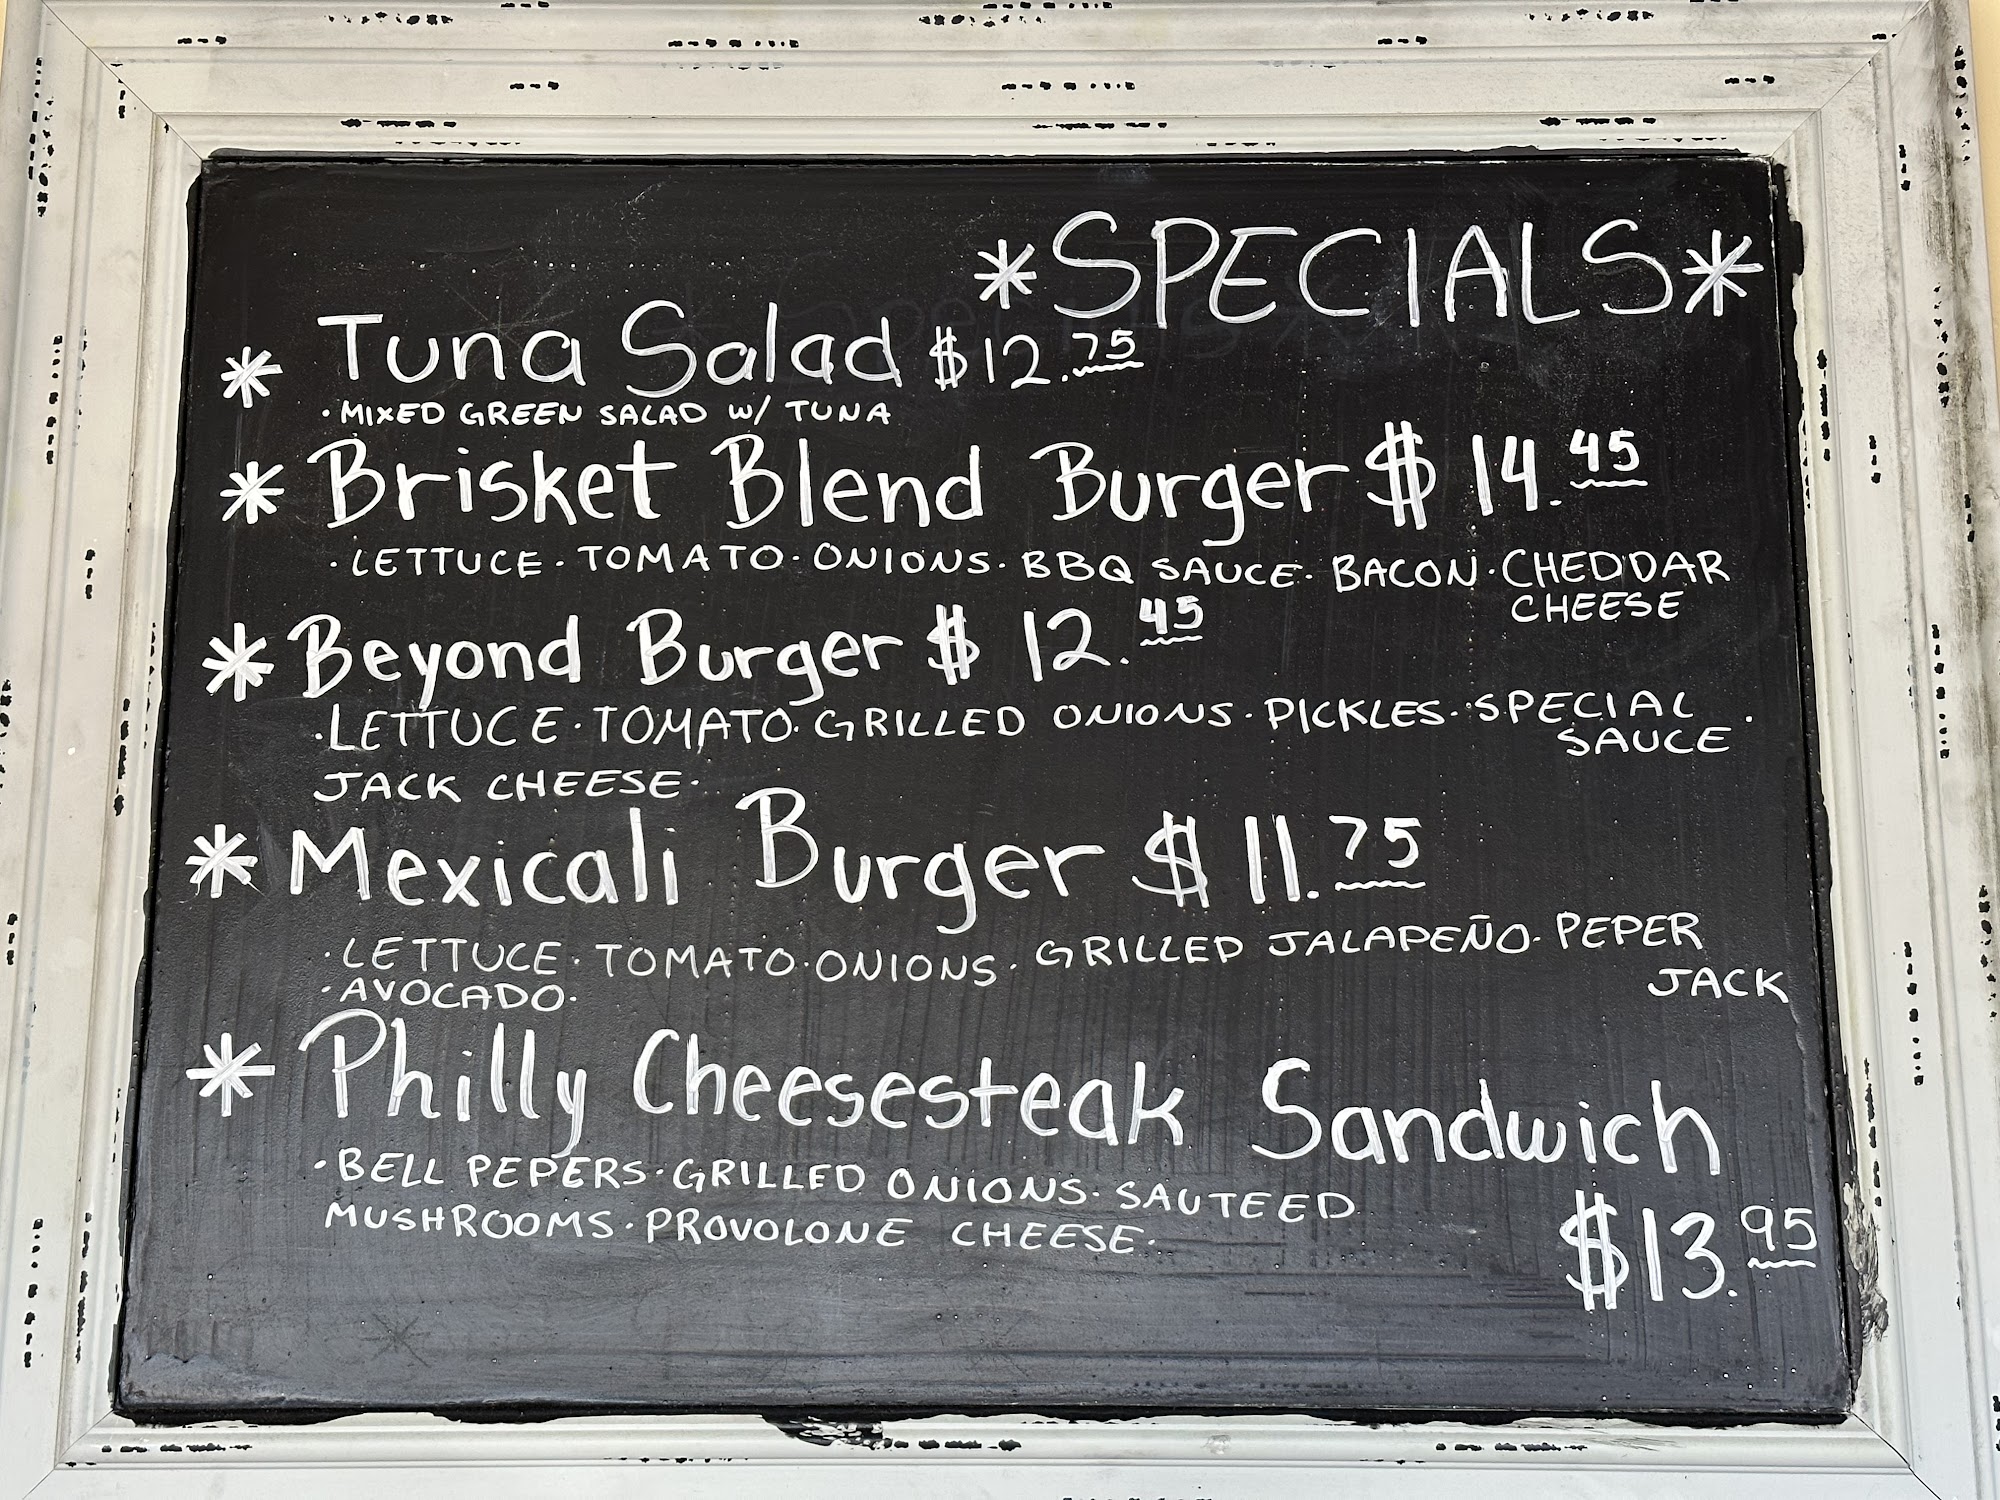 *SPECIALS*
* Tuna Salad $12.75
·MIXED GREEN SALAD W/ TUNA
* Brisket Blend Burger $14.45
·LETTUCE·TOMATO·ONIONS·BBQ SAUCE·BACON·CHEDDAR
CHEESE
* Beyond Burger $12.45
·LETTUCE·TOMATO·GRILLED ONIONS·PICKLES·SPECIAL
SAUCE·
JACK CHEESE·
* Mexicali Burger $11.75
·LETTUCE·TOMATO·ONIONS·GRILLED JALAPEÑO·PEPER
JACK
·AVOCADO·
* Philly Cheesesteak Sandwich
·BELL PEPERS·GRILLED ONIONS·SAUTEED
MUSHROOMS·PROVOLONE CHEESE·
$13.95